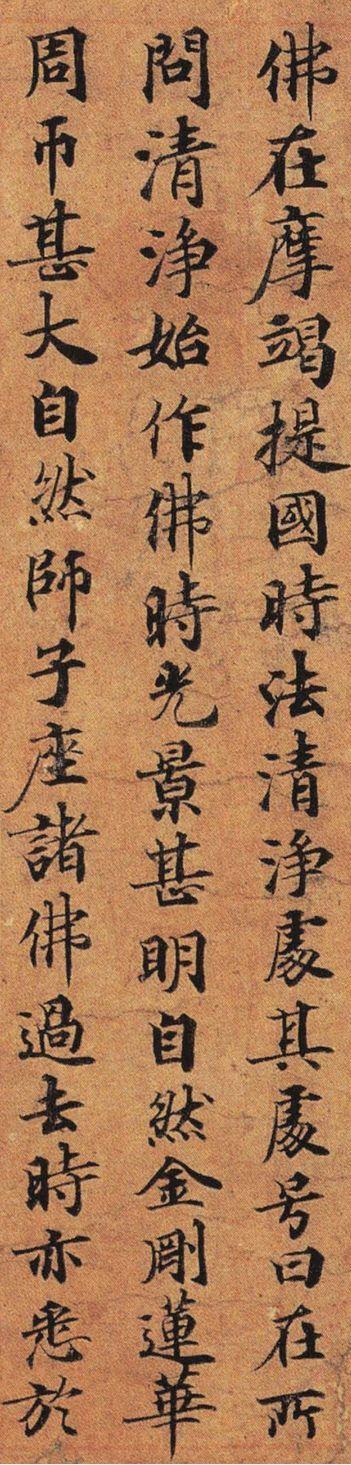 佛在摩竭提國時法清淨處其處号曰在所
問清淨始作佛時光景甚明自然金剛蓮華
周帀甚大自然師子座諸佛過去時亦悉於